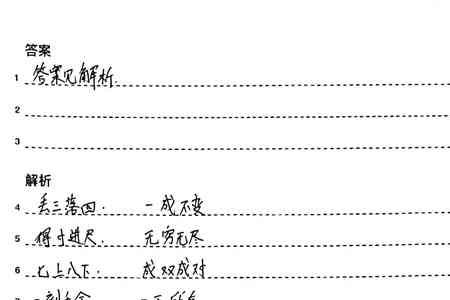 答案
1 答案见解析.
2
3
解析
4 丢三落四. 一成不变
5 得寸进尺. 无穷无尽
6 七上八下. 成双成对
一刻千金